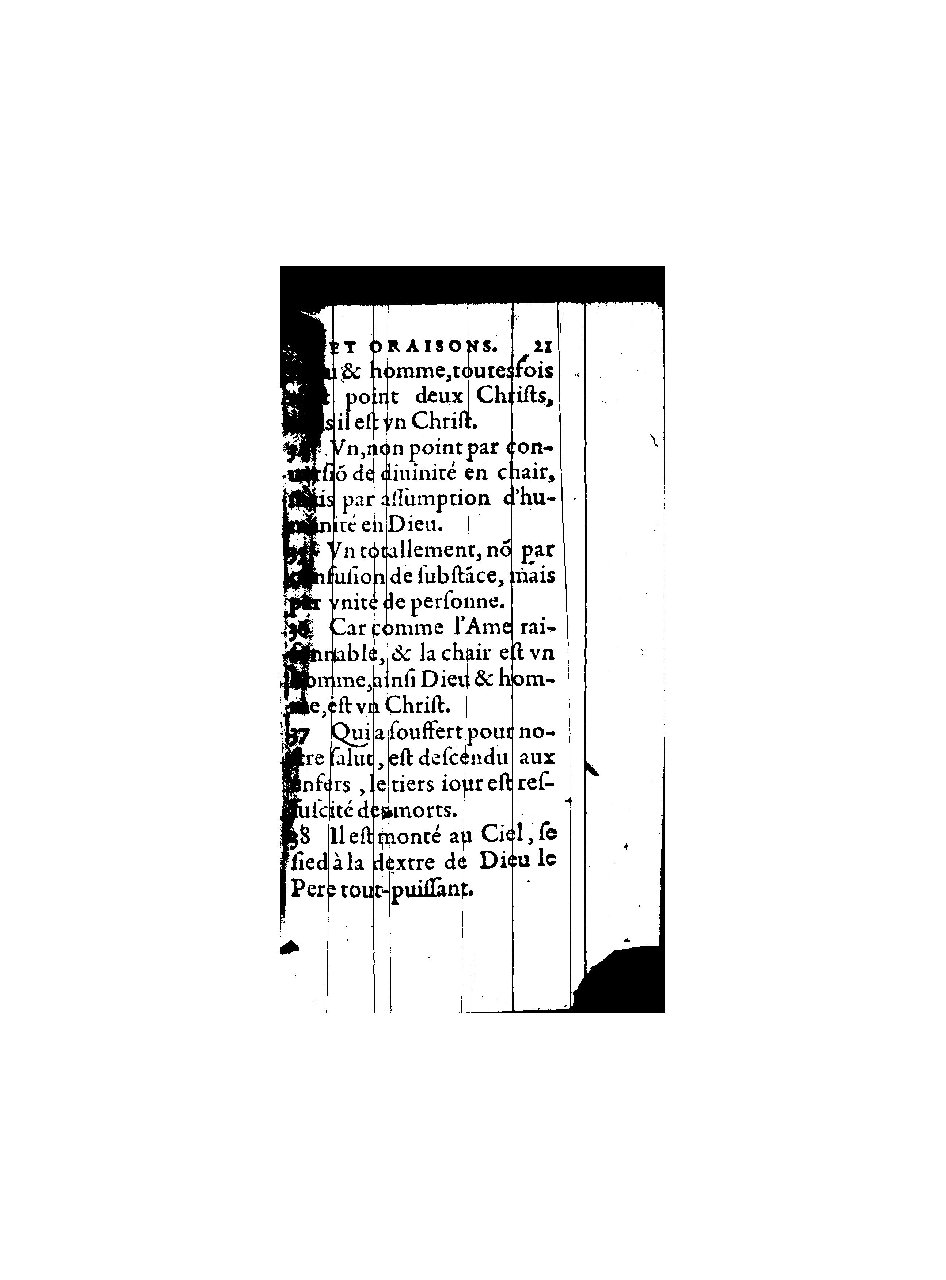 ET ORAISONS. 21
& homme,toutesfois
point deux Chriſts,
il eſt vn Chriſt.
Vn,non point par con-
uerſiõ de diuinité en chair,
mais par aſſumption d'hu-
manité en Dieu.
35 Vn totallement, nõ par
confuſion de ſubſtãce, mais
par vnité de perſonne.
36 Car comme l'Ame rai-
ſonnable, & la chair eſt vn
homme,ainſi Dieu & hom-
me,eſt vn Chriſt.
37 Qui a ſouffert pour no-
ſtre ſalut, eſt deſcendu aux
enfers , le tiers iour eſt reſ-
ſuſcité des morts.
38 Il eſt monté au Ciel, ſe
ſied à la dextre de Dieu le
Pere tout-puiſſant.